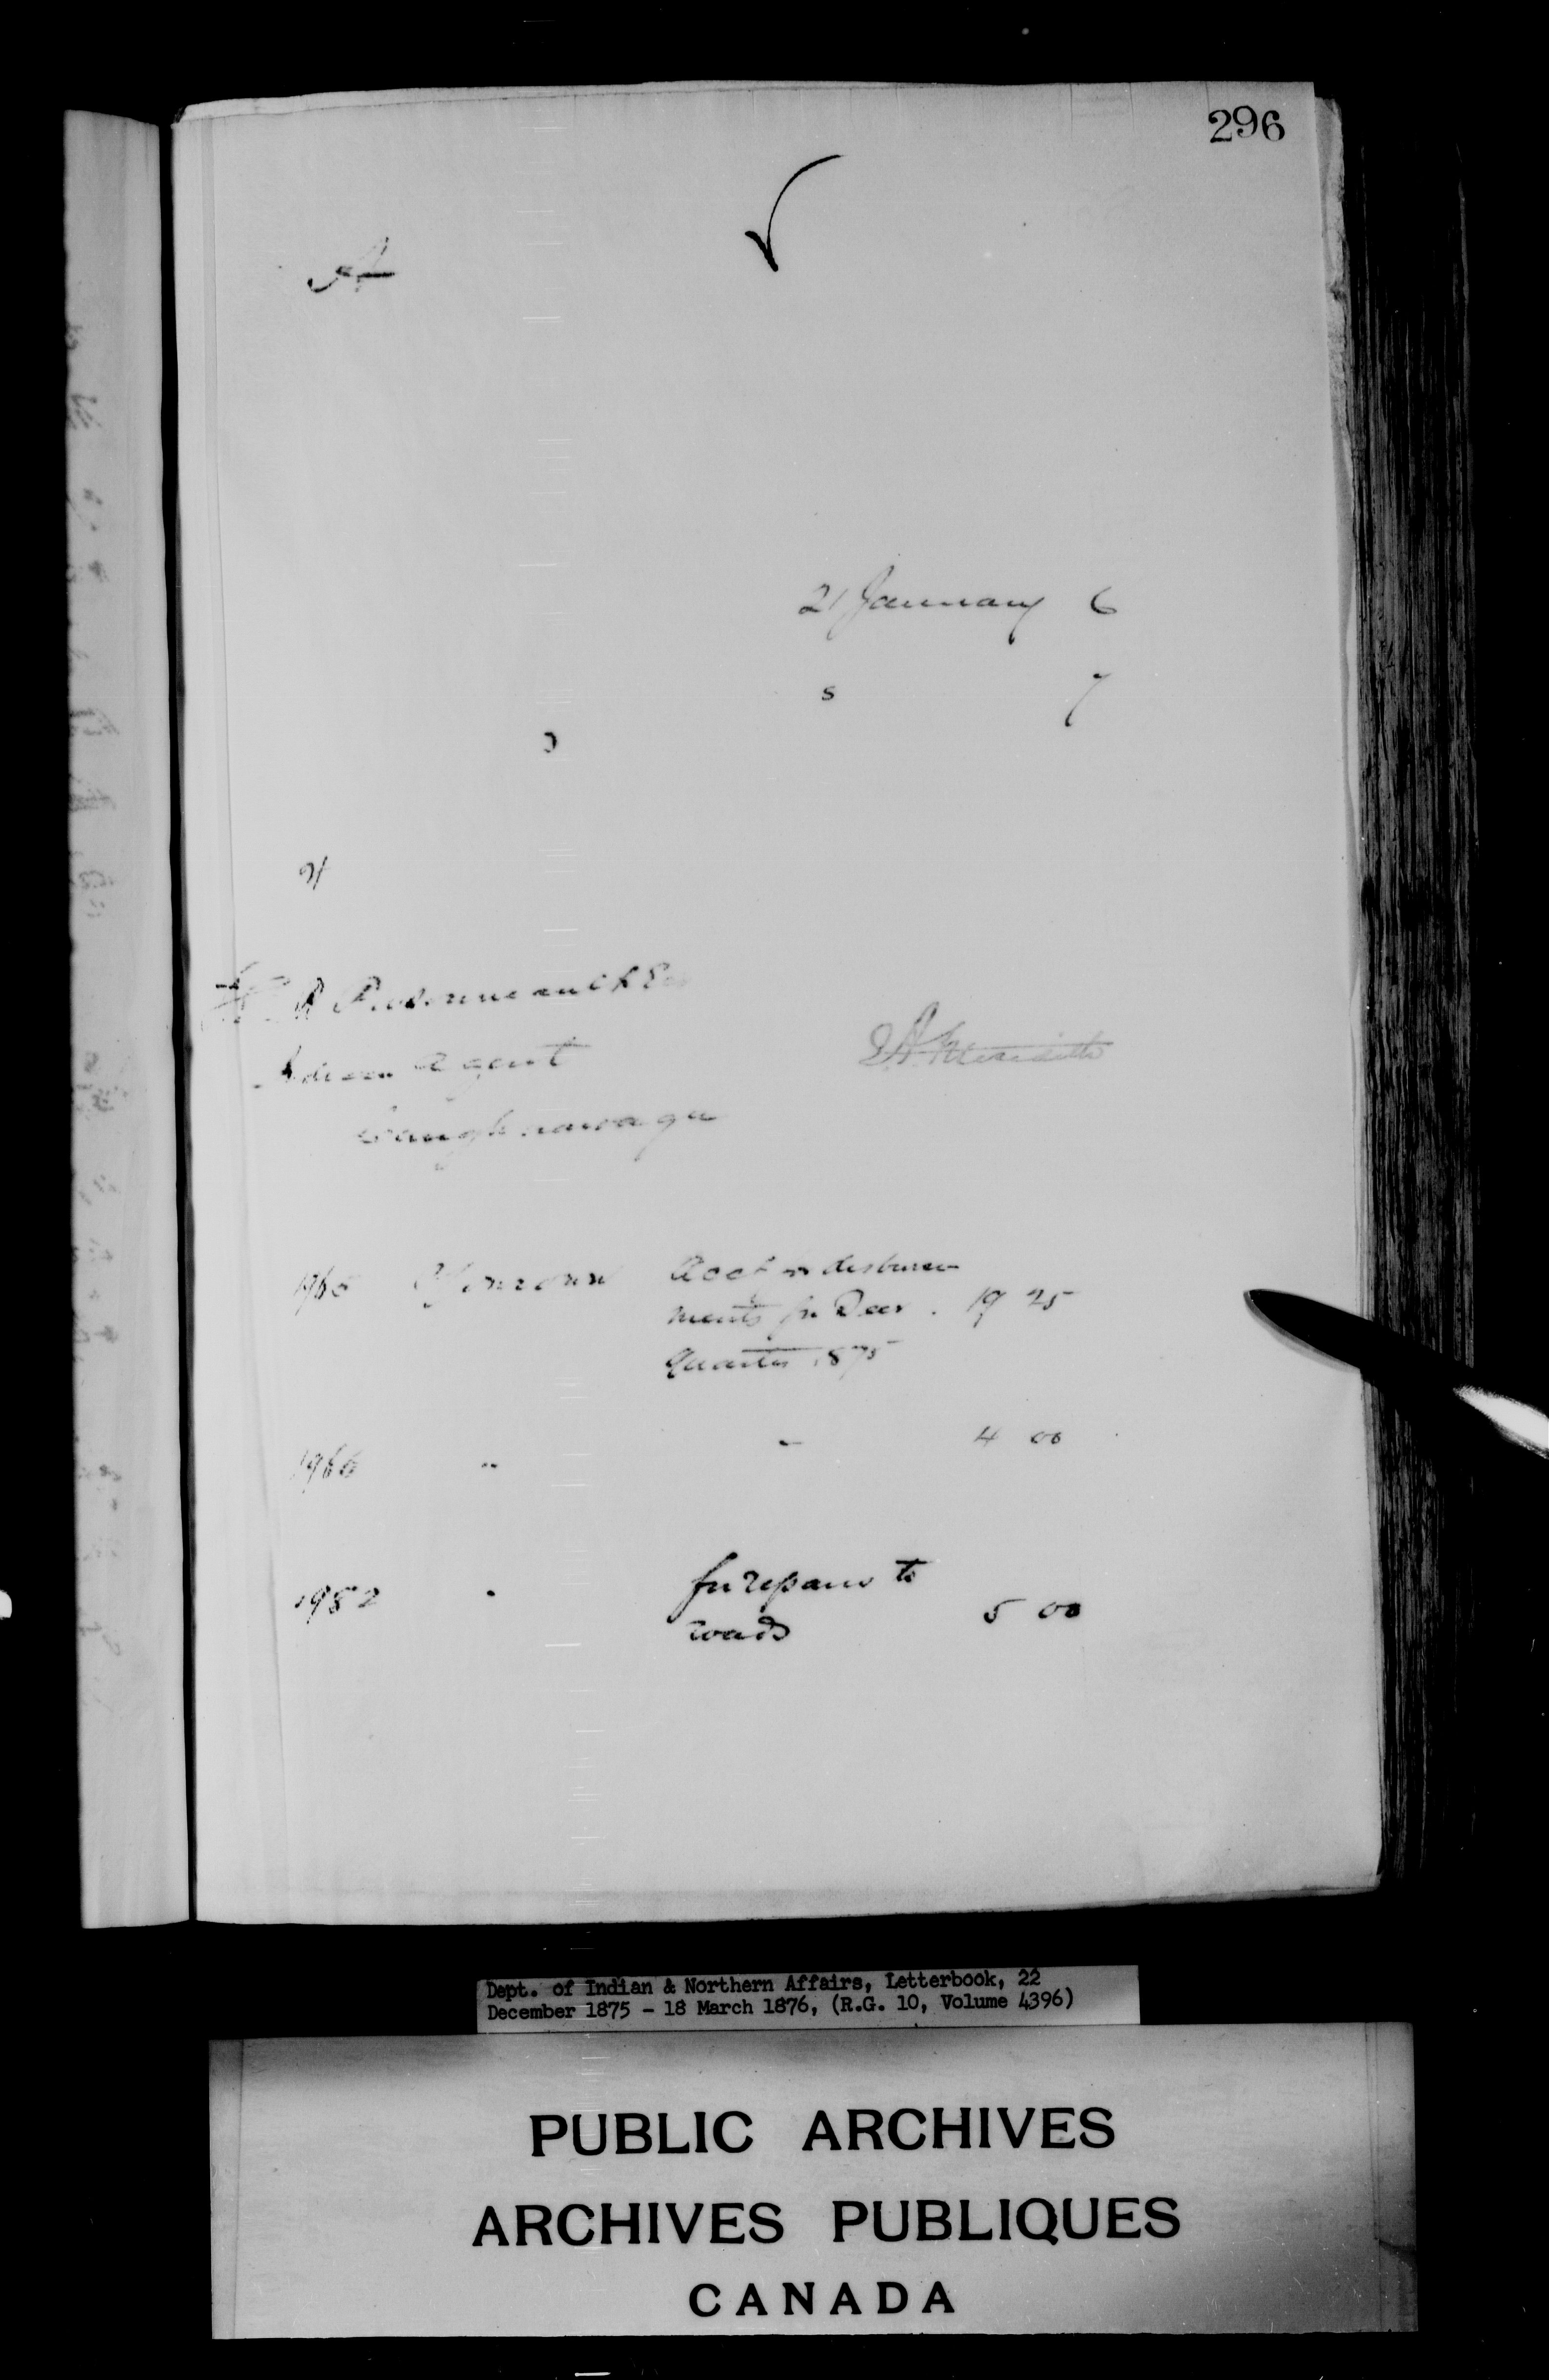 296
A
21 January 6
s 7
H
R Pinsonneault Esq
Indian Agent
E A Meredith
Caughnawaga
1965 Yourown Acct for disburse-
ments for Decr. 19 25
Quarter 1875
1966 " " 4 00
1982 " for repairs to
roads 5 00
Dept. of Indian & Northern Affairs, Letterbook, 22
December 1875 - 18 March 1876, (R.G. 10, Volume 4396)
PUBLIC ARCHIVES
ARCHIVES PUBLIQUES
CANADA